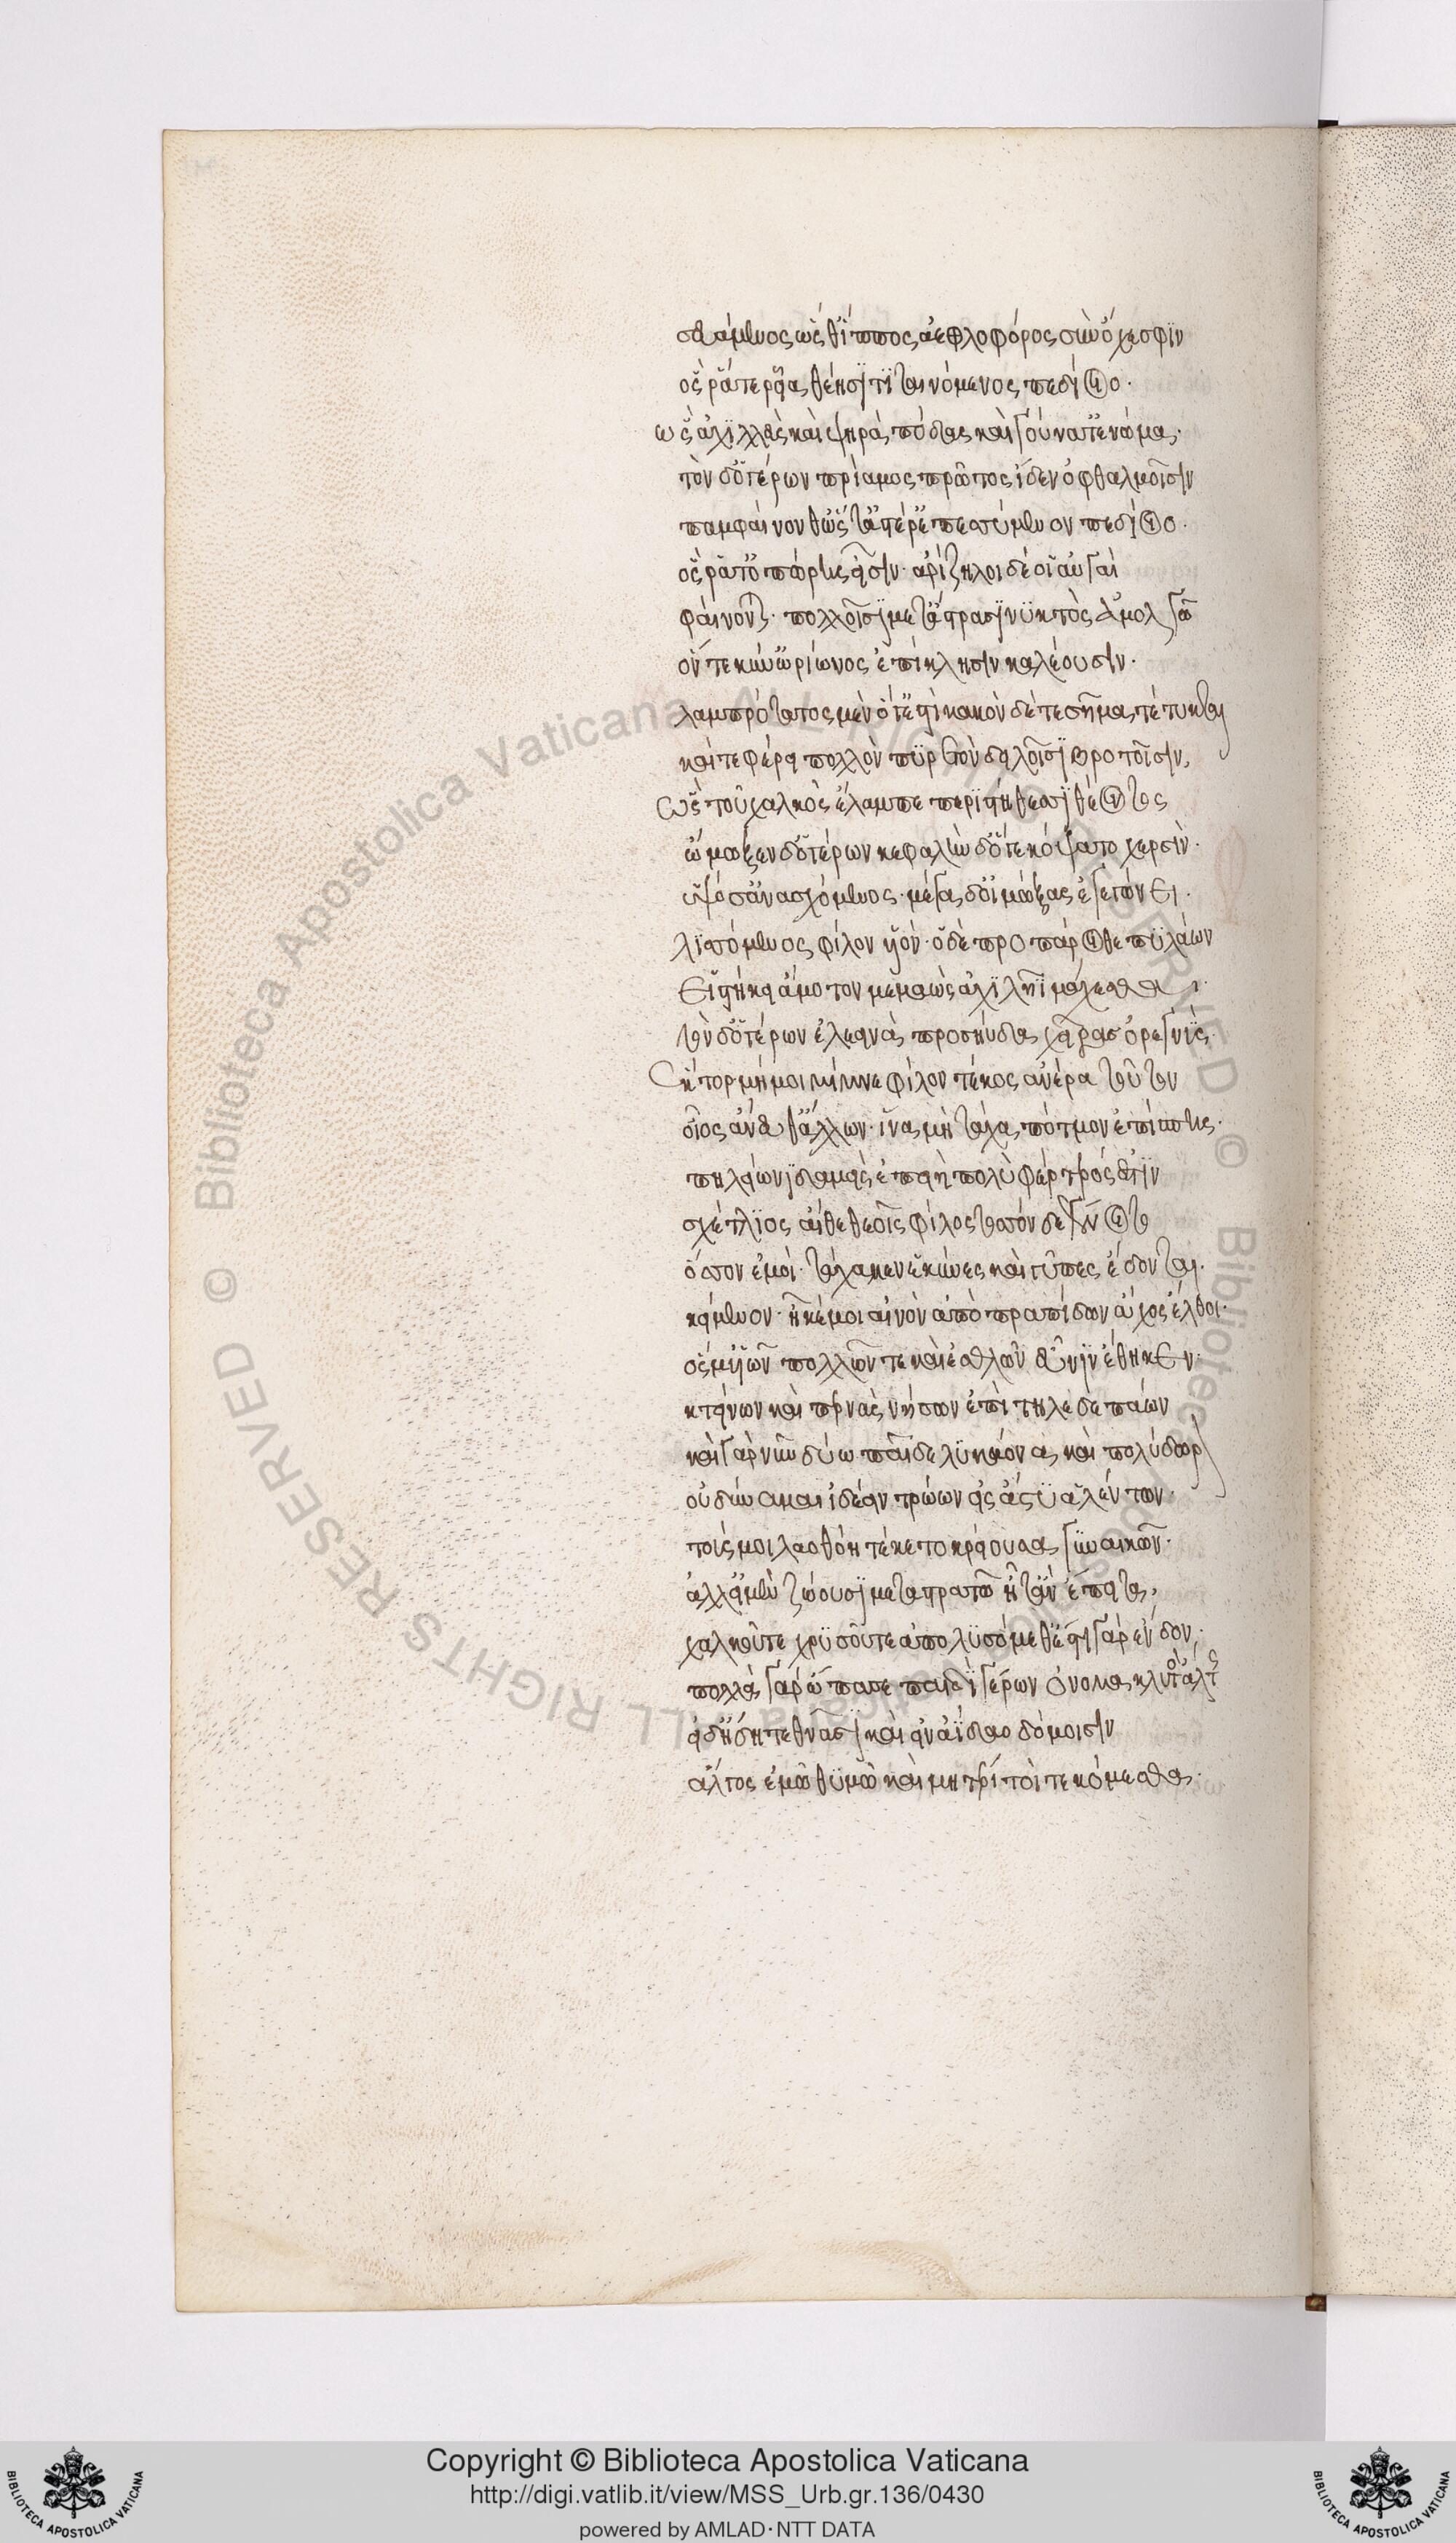 σευάμενος ὥς θ' ἵππος ἀεθλοφόρος σὺν ὄχεσφιν
ὅς ῥά τε ῥεῖα θέησι τιταινόμενος πεδίοιο·
ὣς ἀχιλλεὺς λαιψηρὰ πόδας καὶ γούνατ' ἐνώμα·
τὸν δ' ὁ γέρων πρίαμος πρῶτος ἴδεν ὀφθαλμοῖσιν
παμφαίνονθ' ὥς τ' ἀστέρ' ἐπεσσύμενον πεδίοιο·
ὅς ῥά τ' ὀπώρης εἶσιν· ἀρίζηλοι δέ οἱ αὐγαὶ
φαίνονται· πολλοῖσι μετ' ἀστράσι νυκτὸς ἀμολγῷ
ὅν τε κύν' ὠρίωνος ἐπίκλησιν καλέουσιν·
λαμπρότατος μὲν ὅ γ' ἐστὶ κακὸν δέ τε σῆμα τέτυκται
καί τε φέρει πολλὸν πυρετὸν δειλοῖσι βροτοῖσιν,
ὣς τοῦ χαλκὸς ἔλαμπε περὶ στήθεσσι θέοντος
ᾤμωξεν δ' ὁ γέρων κεφαλὴν δ' ὅ γε κόψατο χερσὶν·
ὑψόσ' ἀνασχόμενος· μέγα δ' οἰμώξας ἐγεγώνει·
λισσόμενος φίλον υἱόν· ὁ δὲ προπάροιθε πυλάων
εἱστήκει ἄμοτον μεμαὼς ἀχιλῆϊ μάχεσθαι·
τὸν δ' ὁ γέρων ἐλεεινὰ προσηύδα χεῖρας ὀρεγνύς·
ἕκτορ μή μοι μίμνε φίλον τέκος ἀνέρα τοῦτον
οἷος ἄνευθ' ἄλλων· ἵνα μὴ τάχα πότμον ἐπίσπῃς·
πηλείωνι δαμείς ἐπειὴ πολὺ φέρτερός ἐστιν
σχέτλιος αἴθε θεοῖς φίλος τοσσόν δε γένοιτο
ὅσσον ἐμοί· τάχα κεν ἑ κύνες καὶ γῦπες ἔδονται·
κείμενον· ἦ κέ μοι αἰνὸν ἀπὸ πραπίδων ἄχος ἔλθοι·
ὅς μ' υἱῶν πολλῶν τε καὶ ἐσθλῶν εὖνιν ἔθηκεν·
κτείνων καὶ περνὰς νήσων ἐπὶ τηλεδεπάων
καὶ γὰρ νῦν δύω παῖδε λυκάονα καὶ πολύδωρον
οὐ δύναμαι ἰδέειν τρώων εἰς ἄστυ ἀλέντων·
τούς μοι λαοθόη τέκετο κρείουσα γυναικῶν·
ἀλλ' εἰ μὲν ζώουσι μετὰ στρατῷ ἦ τ' ἂν ἔπειτα,
χαλκοῦ τε χρυσοῦ τε ἀπολυσόμεθ' ἔστι γὰρ ἔνδον,
πολλὰ γὰρ ὤπασε παιδὶ γέρων ὀνομάκλυτος ἄλτης
εἰ δ' ἤδη τεθνᾶσι καὶ εἰν ἀΐδαο δόμοισιν
ἄλγος ἐμῷ θυμῷ καὶ μητρί τοὶ τεκόμεσθα·
Copyright © Biblioteca Apostolica Vaticana
http://digi.vatlib.it/view/MSS_Urb.gr.136/0430
powered by AMLAD·NTT DATA